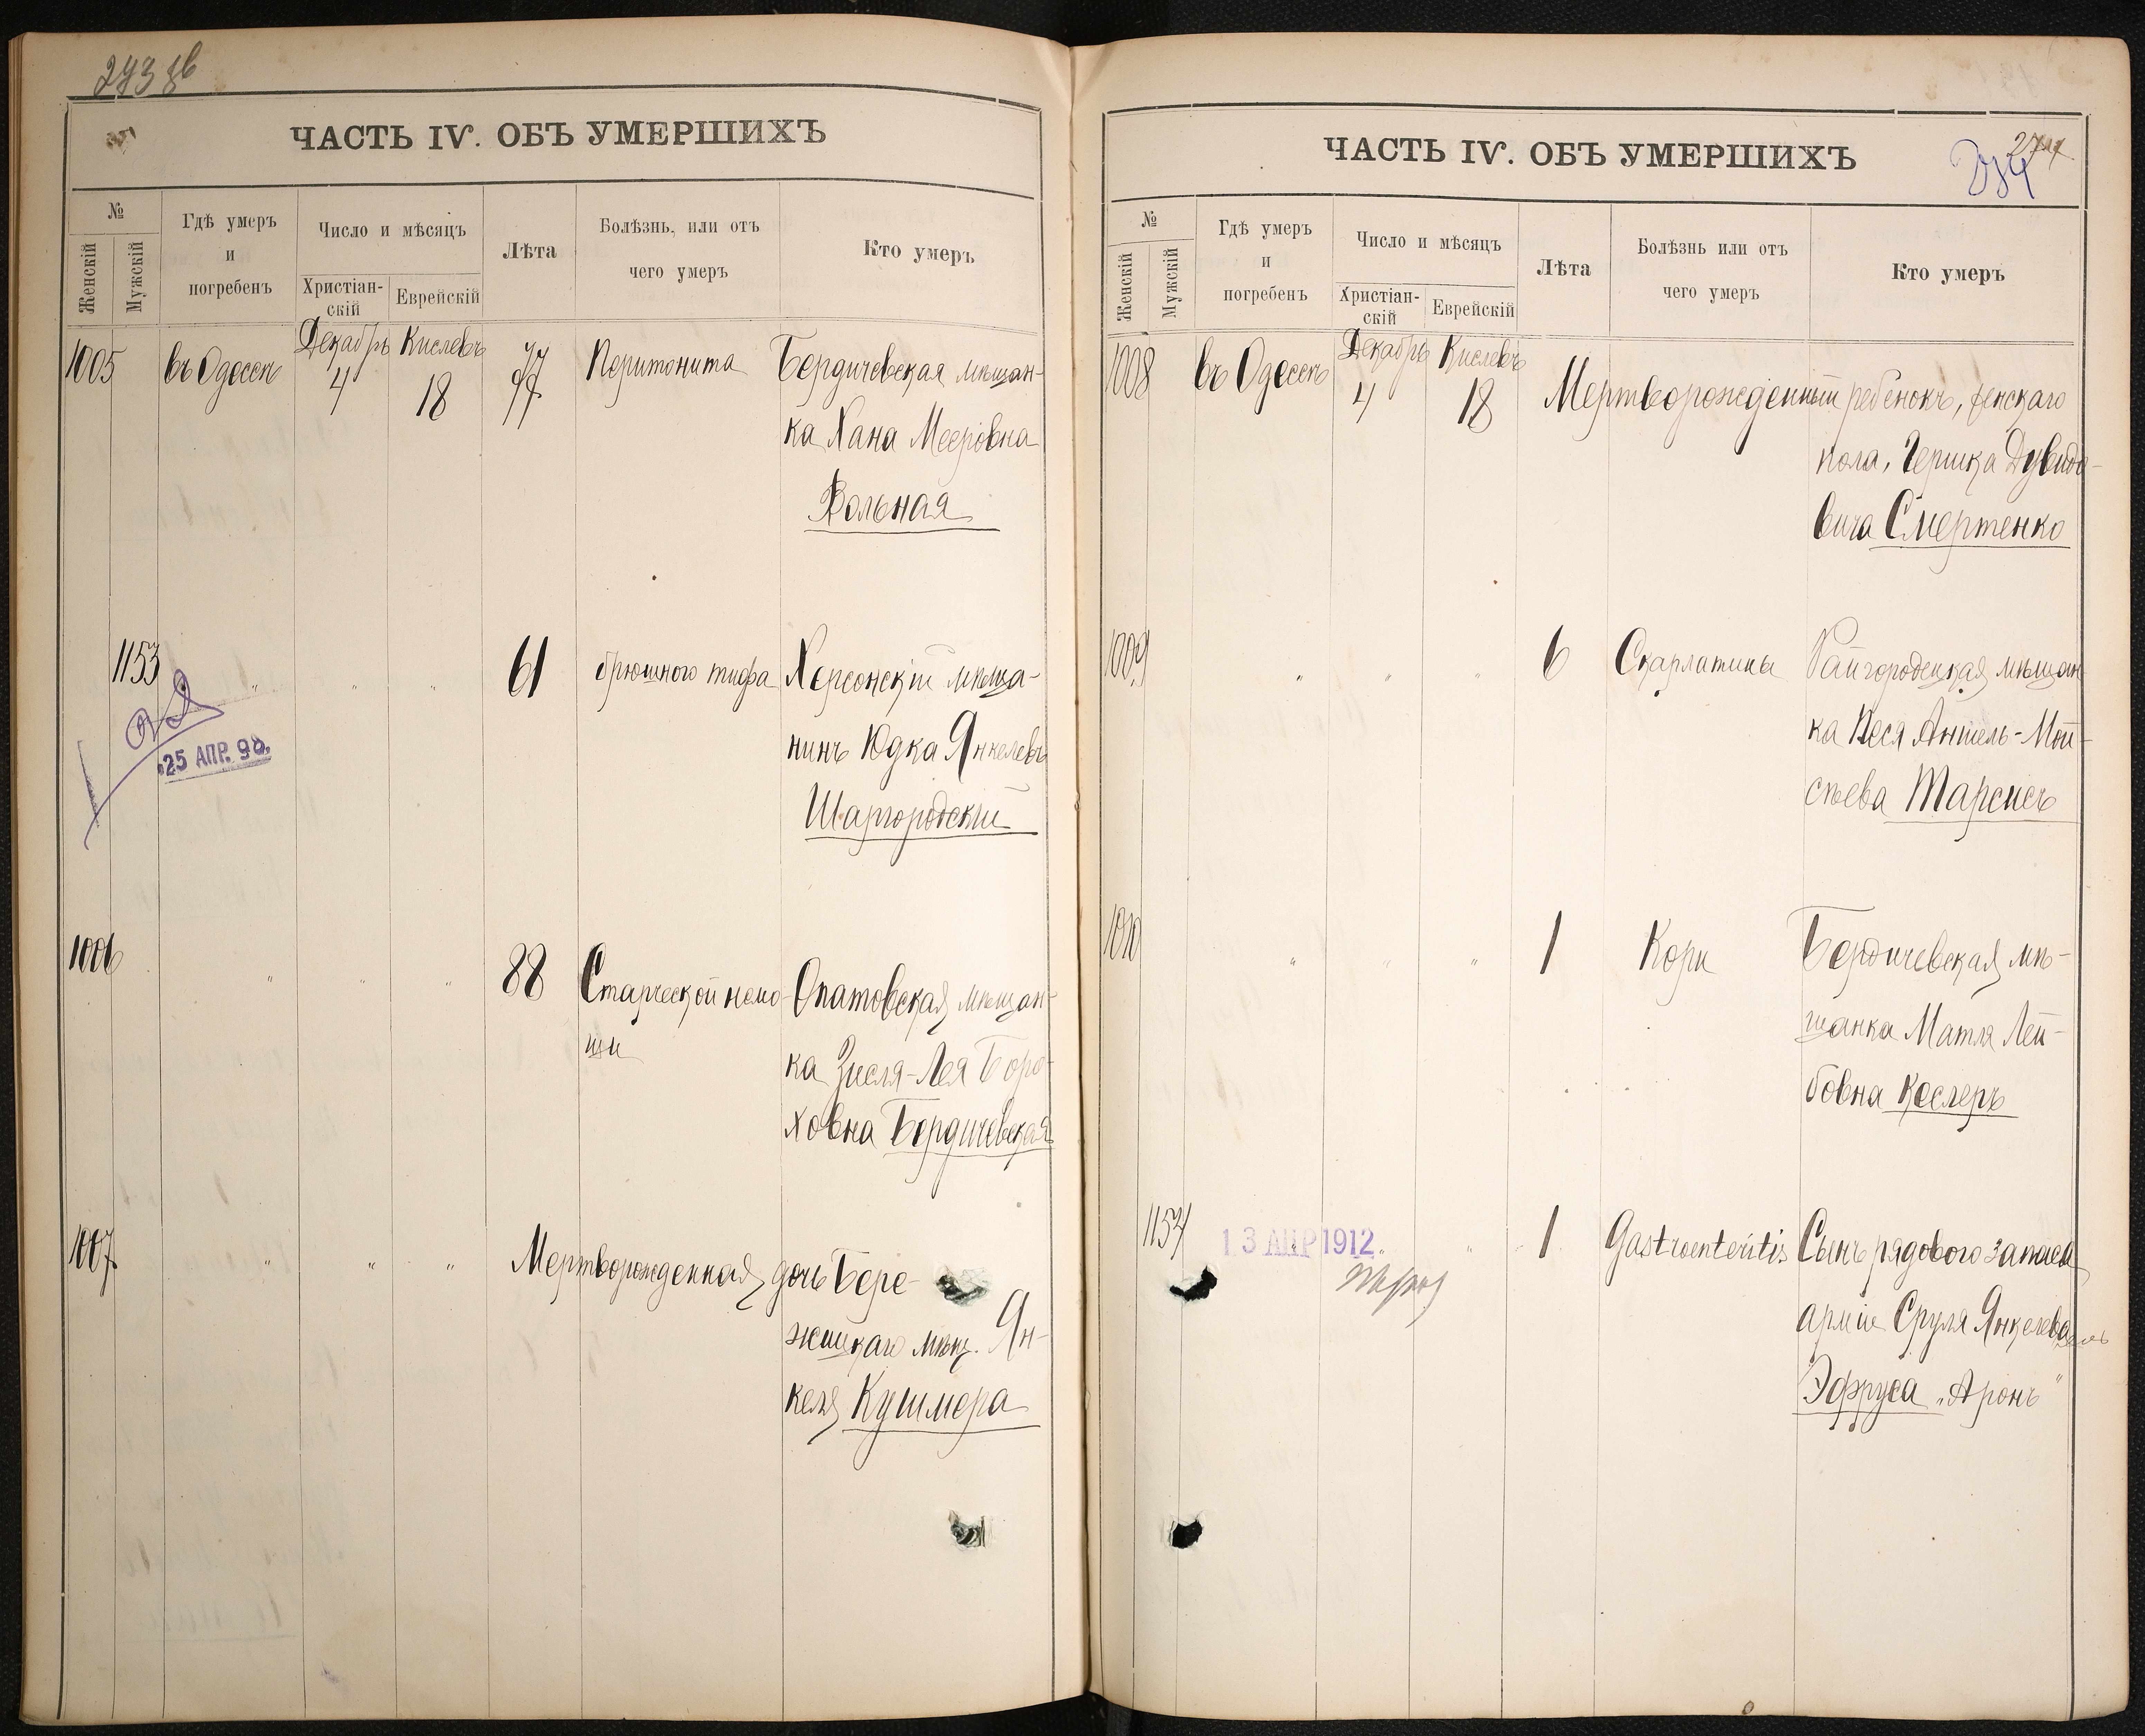 ЧАСТЬ IV. ОБЪ УМЕРШИХЪ
№
Женскій
Мужскій
Гдѣ умеръ
и
погребенъ
Число и мѣсяцъ
Христіан-
скій
Еврейскій
Лѣта
Болѣзнь, или отъ
чего умеръ
Кто умеръ
1005
въ Одессѣ
Декабрь
4
Кислевъ
18
77
Перитонита
Бердичевская мѣщан-
ка Хана Мееровна
Вольная
1153
" " "
61
брюшного тифа
Херсонскій мѣща-
нинъ Юдка Янкелевъ
Шаргородскій
25 АПР. 98.
1006
" " "
88
Старческой немо-
щи
Опатовская мѣщан-
ка Зисля-Лея Боро-
ховна Бердичевская
1007
" " "
Мертворожденная дочь Бере-
жецкаго мѣщ. Ян-
келя Кушмера
ЧАСТЬ IV. ОБЪ УМЕРШИХЪ
274
274
№
Женскій
Мужскій
Гдѣ умеръ
и
погребенъ
Число и мѣсяцъ
Христіан-
скій
Еврейскій
Лѣта
Болѣзнь или отъ
чего умеръ
Кто умеръ
1008
въ Одессѣ
Декабрь
4
Кислевъ
18
Мертворожденный ребенокъ, женскаго
пола, Гершка Дувидо-
вича Смертенко
1009
" " "
6
Скарлатины
Райгородецкая мѣщан-
ка Песя Аншель-Мой-
сѣева Тарсисъ
1010
" " "
1
Кори
Бердичевская мѣ-
щанка Матля Лей-
бовна Кеслеръ
1154
13 АПР 1912
"
1
Gastroenteritis
Сынъ рядового запаса
арміи Сруля Янкелева
Эфруса „Аронъ"